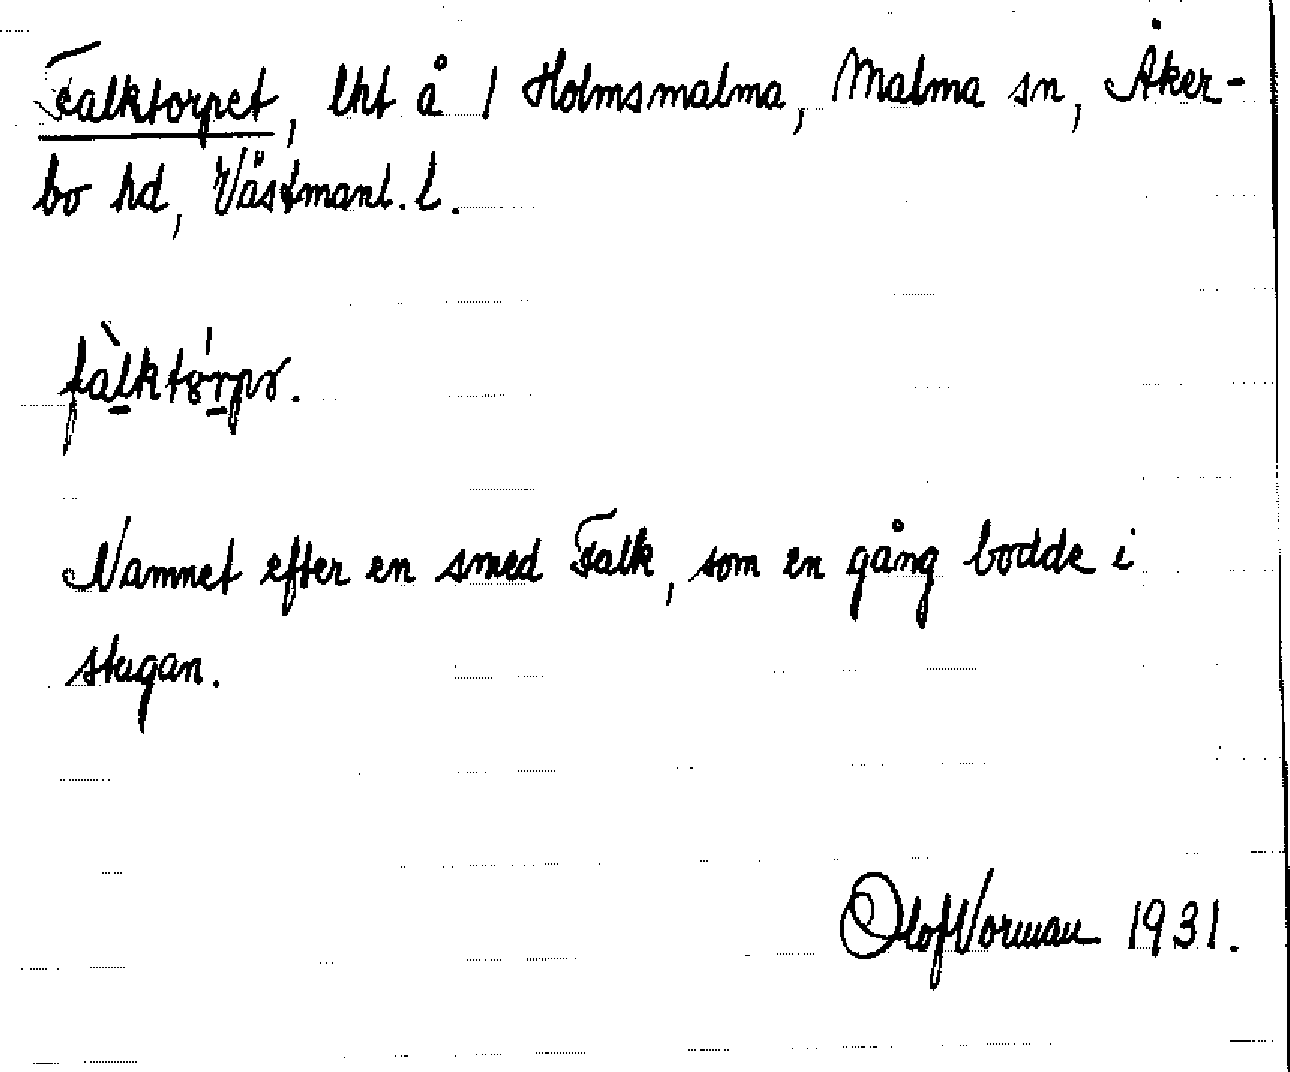 Falktorpet, lht å 1 Holmsmalma, Malma sn, Åker-
bo hd, Västmanl. l.
fàlktórpə.
Namnet efter en smed Falk, som en gång bodde i
stugan.
Olof Vorman 1931.